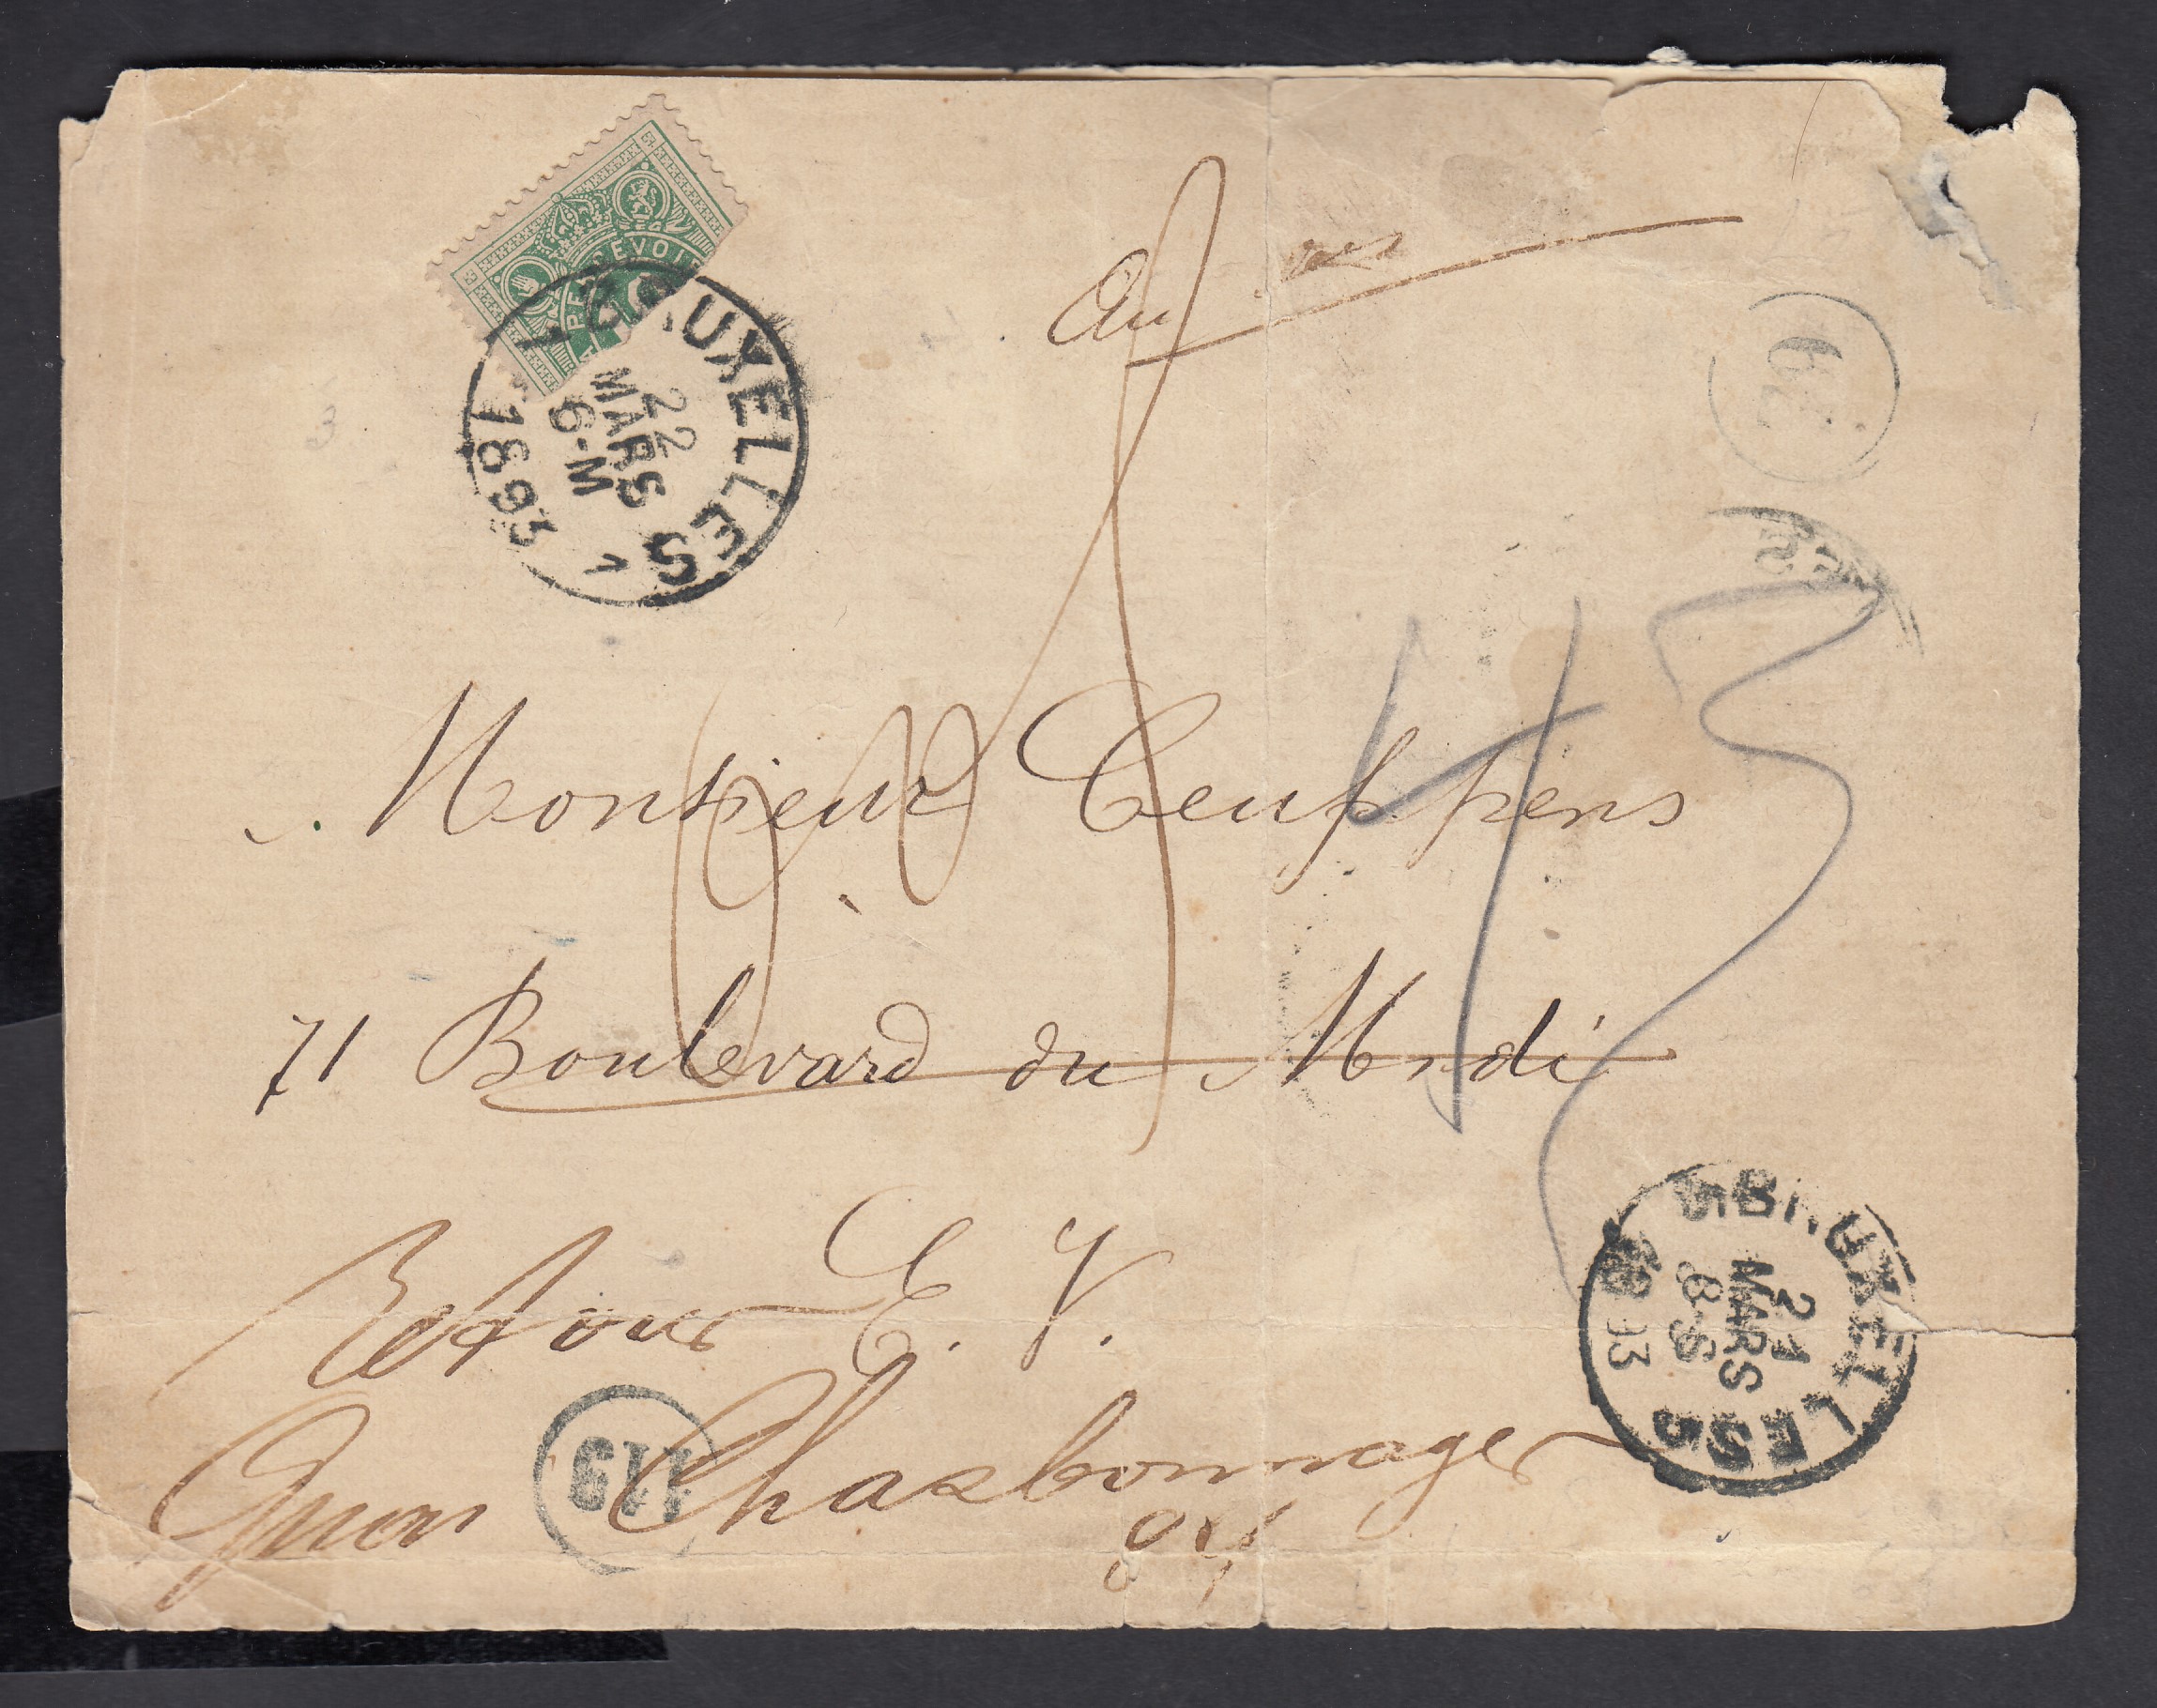 A PERCEVOIR
BRUXELLES 1
22
MARS
6-M
1893
Au
29
ES
Monsieur Ceuppens
71 Boulevard du Midi
E. V.
Retour
Quai Charbonnages
119
BRUXELLES 5
21
MARS
8-S